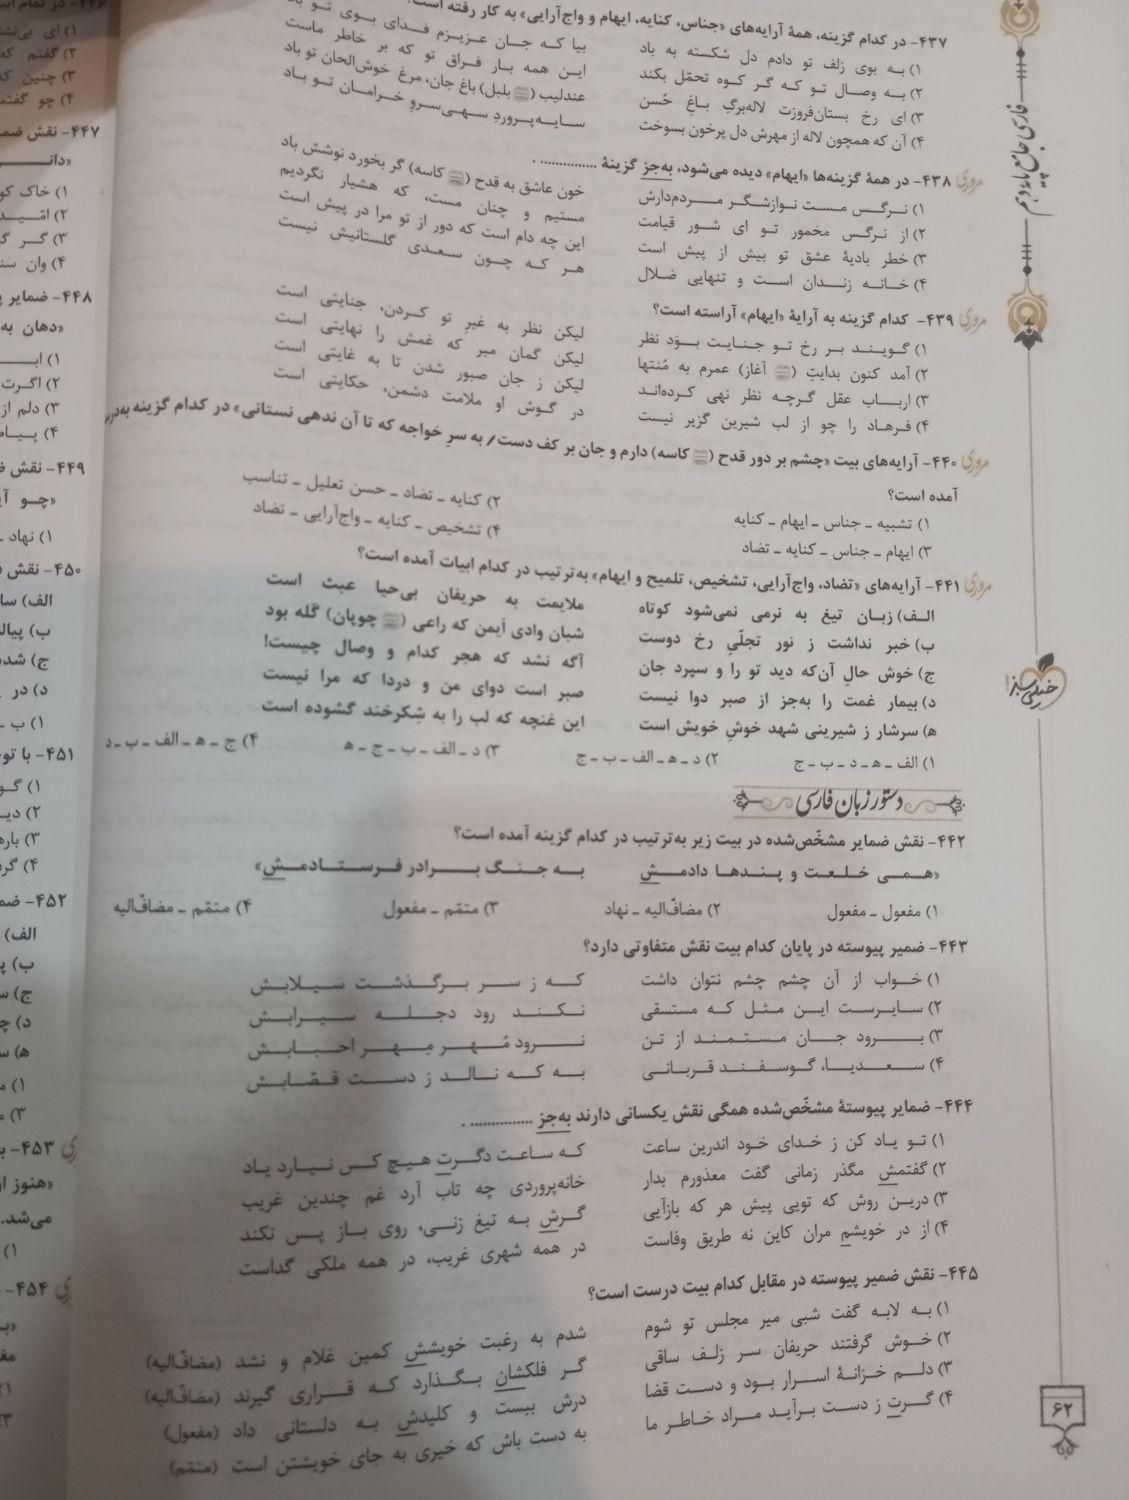 ۴۳۷- در کدام گزینه، همهٔ آرایه‌های «جناس، کنایه، ایهام و واج‌آرایی» به کار رفته است؟
۱) بــه بوی زلف تو دادم دل شکسته به باد بیا کــه جان عزیــزم فــدای بوی تــو باد
۲) بــه وصال تــو کــه گــر کــوه تحمّل بکند ایــن همه بــار فراق تو که بر خاطر ماست
۳) ای رخ بستان‌فروزت لاله‌برگِ بــاغِ حُسن عندلیب (بلبل) باغ جان، مرغ خوش‌الحان تو باد
۴) آن که همچون لاله از مهرش دل پرخون بسوخت ســایــه‌پــروردِ سـهـی‌ســروِ خــرامان تــو بـاد
مروری ۴۳۸- در همهٔ گزینه‌ها «ایهام» دیده می‌شود، به‌جز گزینهٔ .............. .
۱) نــرگــس مــست نــوازشــگــر مــردم‌دارش خون عاشق به قدح (کاسه) گر بخورد نوشش باد
۲) از نــرگس مخمور تــو ای شــور قیامت مستیم و چنان مست، که هشیار نگردیم
۳) خطر بادیهٔ عشق تو بیش از پیش است این چه دام است که دور از تو مرا در پیش است
۴) خــانــه زنــدان اســت و تنهایی ضــلال هــر کــه چــون ســعدی گلستانیش نیست
مروری ۴۳۹- کدام گزینه به آرایهٔ «ایهام» آراسته است؟
۱) گـویـنـد بــر رخ تــو جـنـایـت بــوَد نظر لیکن نظر به غیرِ تو کــردن، جنایتی است
۲) آمد کنون بدایتِ (آغاز) عمرم به مُنتها لیکن گمان مبر که غمش را نهایتی است
۳) اربــاب عقل گرچــه نظر نهی کــرده‌انـد لیکن ز جان صبور شدن تا به غایتی است
۴) فــرهــاد را چو از لب شیرین گزیر نیست در گــوش او ملامت دشمن، حکایتی است
مروری ۴۴۰- آرایه‌های بیت «چشم بر دور قدح (کاسه) دارم و جان بر کف دست/ به سرِ خواجه که تا آن ندهی نستانی» در کدام گزینه به‌درس
آمده است؟
۱) تشبیه ـ جناس ـ ایهام ـ کنایه
۲) کنایه ـ تضاد ـ حسن تعلیل ـ تناسب
۳) ایهام ـ جناس ـ کنایه ـ تضاد
۴) تشخیص ـ کنایه ـ واج‌آرایی ـ تضاد
مروری ۴۴۱- آرایه‌های «تضاد، واج‌آرایی، تشخیص، تلمیح و ایهام» به‌ترتیب در کدام ابیات آمده است؟
الــف) زبــان تیغ به نرمی نمی‌شود کوتاه ملایمت به حریفان بی‌حیا عبث است
ب) خبر نداشت ز نور تجلّیِ رخ دوست شبان وادی اَیمن که راعی (چوپان) گله بود
ج) خوش حالِ آن‌که دید تو را و سپرد جان آگه نشد که هجر کدام و وصال چیست!
د) بیمار غمت را به‌جز از صبر دوا نیست صبر است دوای من و دردا که مرا نیست
ه) سرشار ز شیرینی شهد خوشِ خویش است این غنچه که لب را به شِکرخند گشوده است
۱) الف ـ ه ـ د ـ ب ـ ج
۲) د ـ ه ـ الف ـ ب ـ ج
۳) د ـ الف ـ ب ـ ج ـ ه
۴) ج ـ ه ـ الف ـ ب ـ د
دستور زبان فارسی
۴۴۲- نقش ضمایر مشخّص‌شده در بیت زیر به‌ترتیب در کدام گزینه آمده است؟
«هــمــی خــلــعــت و پــنــدهــا دادمــش بــه جــنــگ بــرادر فــرســتــادمــش»
۱) مفعول ـ مفعول
۲) مضاف‌الیه ـ نهاد
۳) متمّم ـ مفعول
۴) متمّم ـ مضاف‌الیه
۴۴۳- ضمیر پیوسته در پایان کدام بیت نقش متفاوتی دارد؟
۱) خــواب از آن چشم چشم نتوان داشت کــه ز ســر بــرگــذشــت ســیــلابــش
۲) سـایـرسـت ایــن مــثــل کــه مستسقی نــکــنــد رود دجــلــه ســیــرابــش
۳) بــــرود جـــان مــســتــمــنــد از تـن نــــرود مُــهــر مِــهــر احــبــابــش
۴) ســعــدیــا، گــوســفــنــد قــربــانــی بــه کــه نــالــد ز دســت قــصّــابــش
۴۴۴- ضمایر پیوستهٔ مشخّص‌شده همگی نقش یکسانی دارند به‌جز .............. .
۱) تــو یــاد کن ز خدای خود اندرین ساعت که ســاعت دگــرت هیــچ کس نیــارد یــاد
۲) گفتمش مگذر زمانی گفت معذورم بدار خانه‌پروردی چه تاب آرد غم چندین غریب
۳) دریــن روش که تویی پیش هر که بازآیی گــرش بــه تیغ زنــی، روی بــاز پــس نکند
۴) از در خویشم مران کاین نه طریق وفاست در همه شهری غریب، در همه ملکی گداست
۴۴۵- نقش ضمیر پیوسته در مقابل کدام بیت درست است؟
۱) بــه لابه گفت شبی میر مجلس تو شوم شدم به رغبت خویشش کمین غلام و نشد (مضاف‌الیه)
۲) خــوش گرفتند حریفان سر زلف ساقی گــر فلکشان بــگــذارد کــه قــراری گیرند (مضاف‌الیه)
۳) دلــم خزانهٔ اسرار بود و دست قضا درش ببست و کلیدش به دلستانی داد (مفعول)
۴) گــرت ز دست برآیــد مراد خاطر ما به دست باش که خیری به جای خویشتن است (متمّم)
فارسی جامع پایه دهم
خیلی سبز
۶۲
۱) ای بی‌نشا
۲) گفتم که
۳) چنین که
۴) چو گفته
۴۴۷- نقش ضمی
۱) خاک کو
۲) امّیــد
۳) گــر گ
۴) وان سن
۴۴۸- ضمایر پ
«دهان به
۱) ابــ
۲) اگرت
۳) دلم از
۴) پــیــا
۴۴۹- نقش ض
«چــو آی
۱) نهاد ـ
۴۵۰- نقش
الف) سا
ب) پیاله
ج) شد
د) در
۱) ب ـ
۴۵۱- با توج
۱) گــو
۲) دیــ
۳) باره
۴) گر
۴۵۲- ضم
الف)
ب) پ
ج) س
د) چ
ه) س
۴۵۳-
«هنوز از
می‌شد.
۱)
۴۵۴-